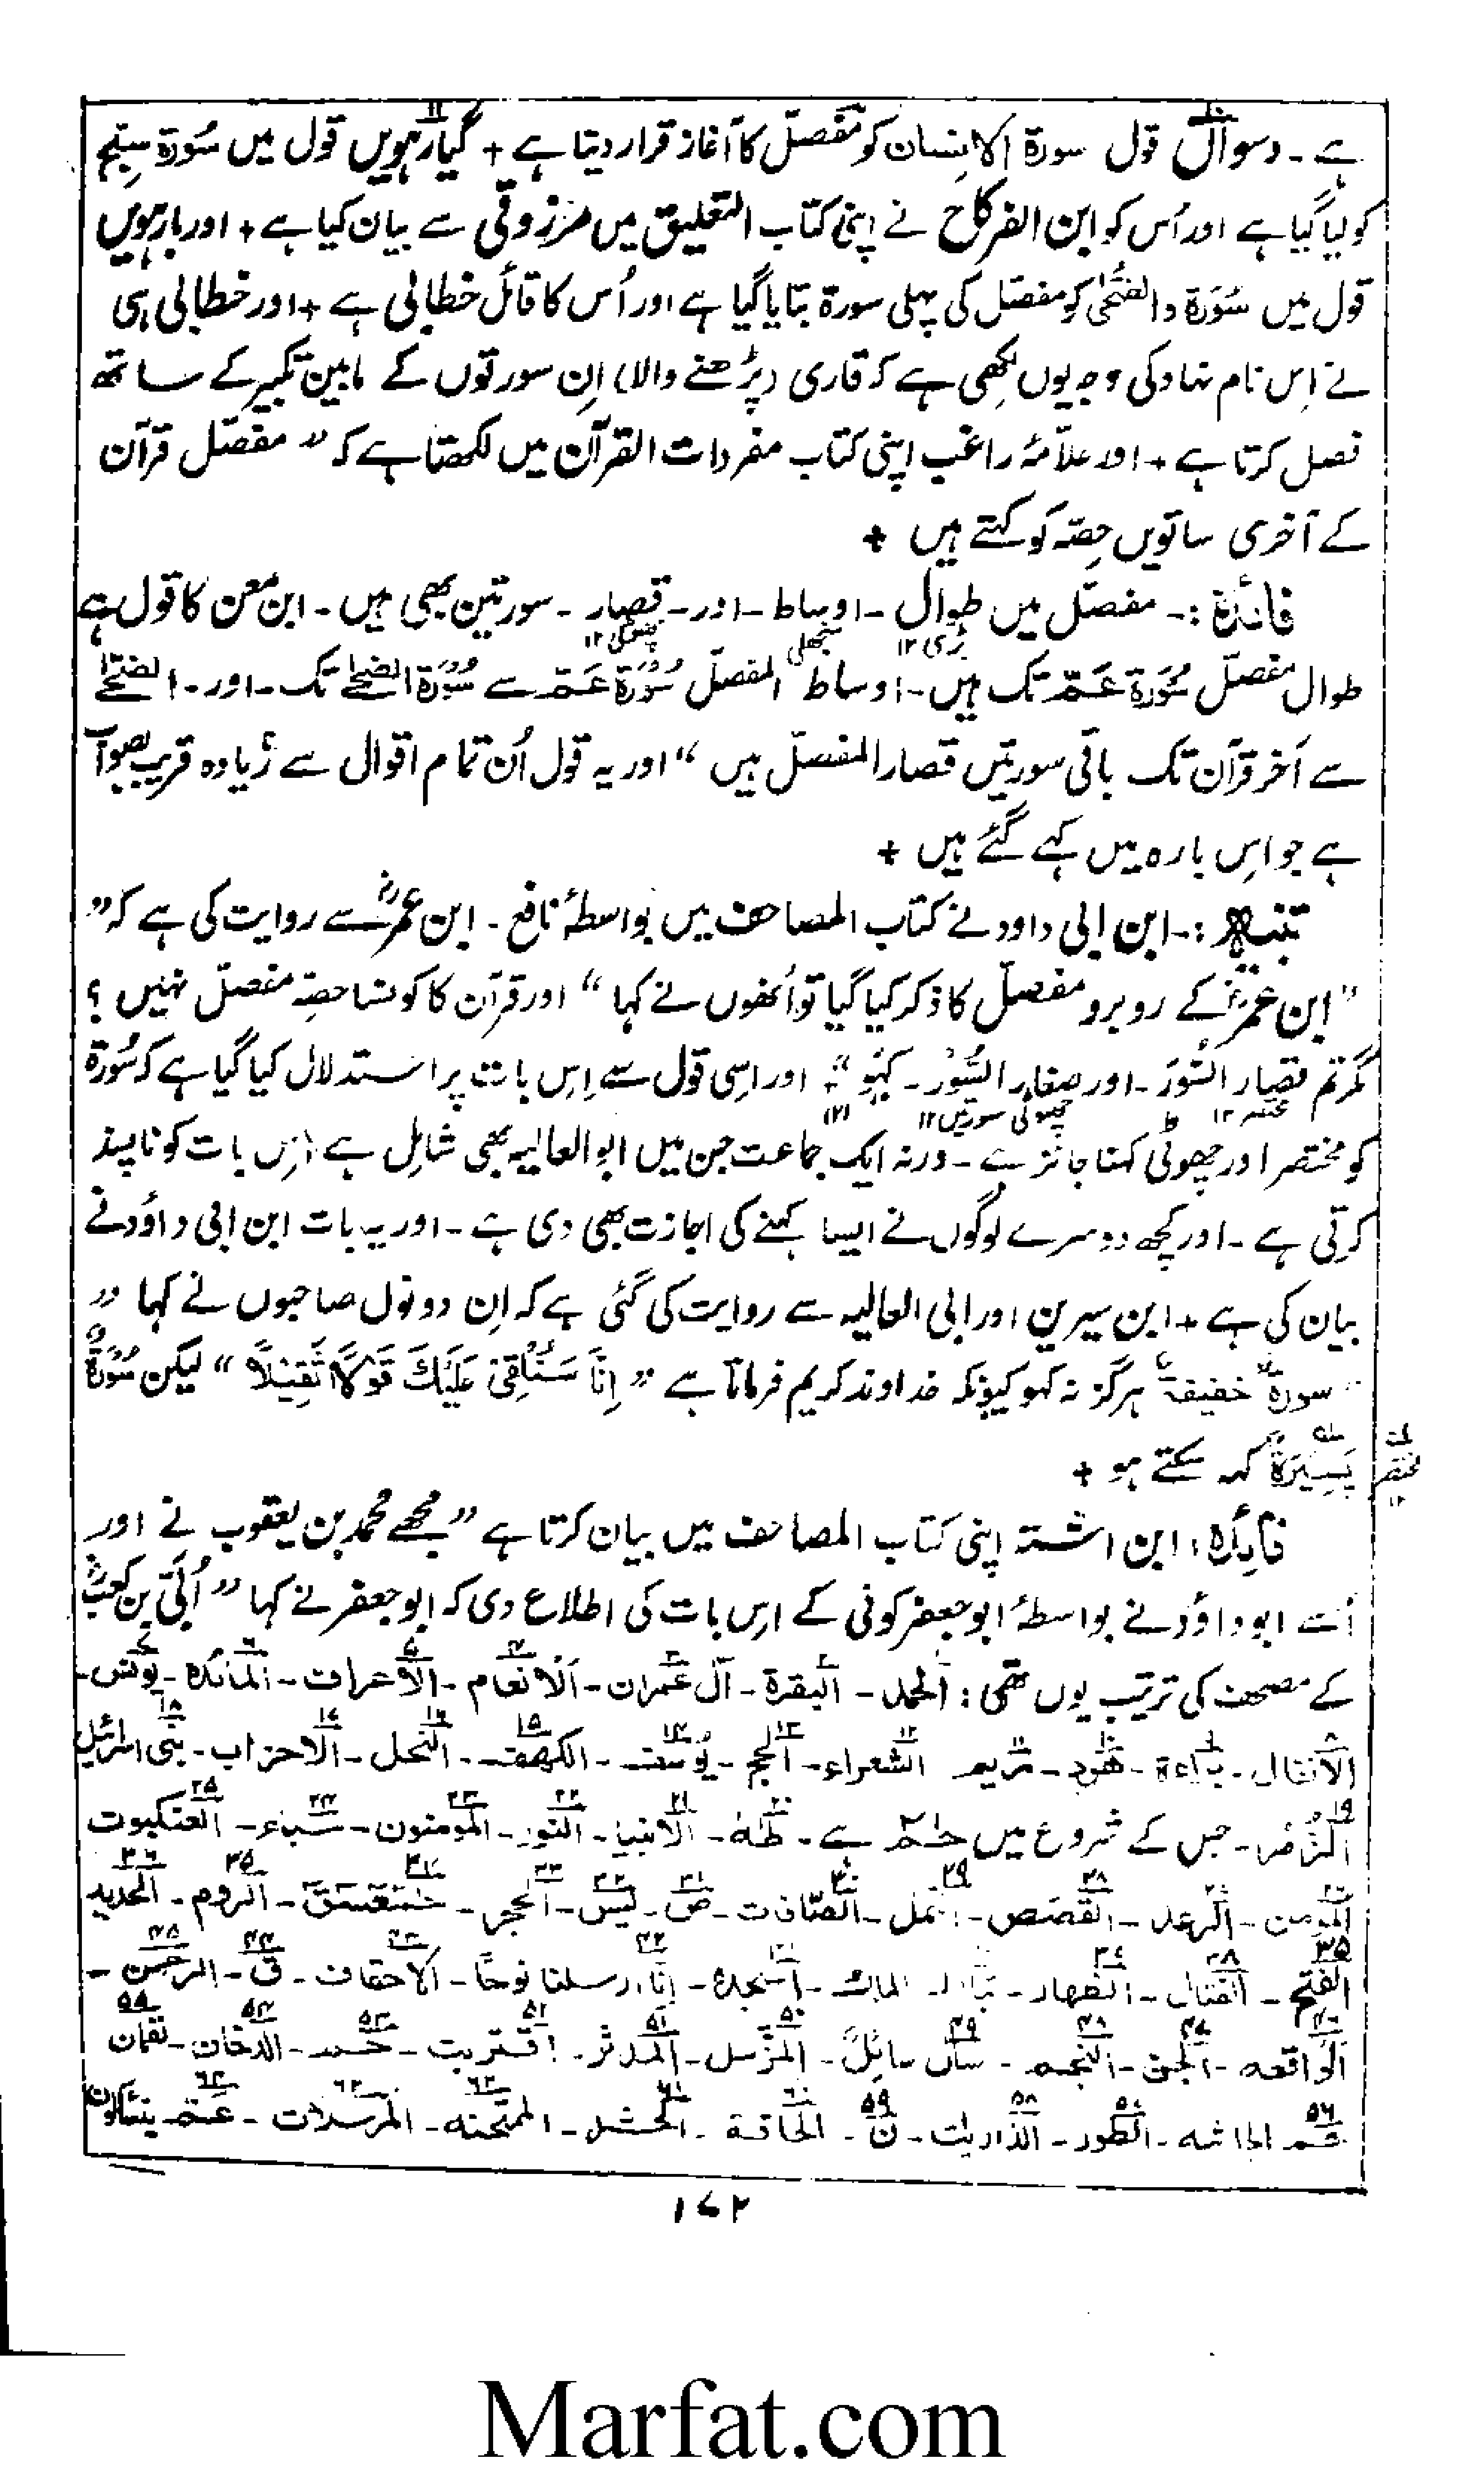 ہے ۔ دسواں قول سورۃ الانسان کو مفصّل کا آغاز قرار دیتا ہے + گیارہویں قول میں سُورۃ سبّح
کو لیا گیا ہے اور اُس کو ابن الفرکاح نے اپنی کتاب التعلیق میں مرزوقی سے بیان کیا ہے + اور بارہویں
قول میں سُوْرَۃ والضُّحٰی کو مفصّل کی پہلی سورۃ بتایا گیا ہے اور اُس کا قائل خطابی ہے + اور خطابی ہی
نے اِس نام نہاد کی وجہ یوں لکھی ہے کہ قاری (پڑھنے والا) اِن سورتوں کے مابین تکبیر کے ساتھ
فصل کرتا ہے + اور علّامۂ راغب اپنی کتاب مفردات القرآن میں لکھتا ہے کہ " مفصّل قرآن
کے آخری ساتویں حِصّہ کو کہتے ہیں +
فائدۃ :۔ مفصّل میں طِوال ۔ اوساط ۔ اور ۔ قصار ۔ سورتیں بھی ہیں ۔ ابن معن کا قول ہے
بڑی ۱۲ منجھلی چھوٹی ۱۲
طوال مفصّل سُوْرَۃ عَمَّ تک ہیں ۔ اوساط المفصّل سُوْرَۃ عَمَّ سے سُوْرَۃ الضُّحٰے تک ۔ اور ۔ الضُّحٰے
سے آخر قرآن تک باقی سورتیں قصار المفصّل ہیں " اور یہ قول اُن تمام اقوال سے زیادہ قریب بصواب
ہے جو اِس بارہ میں کہے گئے ہیں +
تنبیہ :۔ ابن ابی داود نے کتاب المصاحف میں بواسطۂ نافع ۔ ابن عمرؓ سے روایت کی ہے کہ "
" ابن عمرؓ کے روبرو مفصّل کا ذکر کیا گیا تو اُنھوں نے کہا " اور قرآن کا کونسا حصّہ مفصّل نہیں ؟
مگر تم قصار السُّوَر ۔ اور صغار السُّوَر ۔ کہو " + اور اسی قول سے اِس بات پر استدلال کیا گیا ہے کہ سُورۃ
مختصر ۱۲ چھوٹی سورتیں ۱۲
کو مختصر اور چھوٹی کہنا جائز ہے ۔ ورنہ ایک جماعت جن میں ابو العالیہ بھی شامل ہے اِس بات کو ناپسند
کرتی ہے ۔ اور کچھ دوسرے لوگوں نے ایسا کہنے کی اجازت بھی دی ہے ۔ اور یہ بات ابن ابی داوٗد نے
بیان کی ہے + ابن سیرین اور ابی العالیہ سے روایت کی گئی ہے کہ اِن دونوں صاحبوں نے کہا "
" سورۃ خفیفۃ ہرگز نہ کہو کیونکہ خداوند کریم فرماتا ہے " اِنَّا سَنُلْقِیْ عَلَیْكَ قَوْلًا ثَقِیْلًا " لیکن سُوْرَۃٌ
یَسِیْرَۃٌ کہہ سکتے ہو +
مختصر ۱۲
فائدہ : ابن اشتہ اپنی کتاب المصاحف میں بیان کرتا ہے " مجھے محمد بن یعقوب نے اور
اُسے ابو داوٗد نے بواسطۂ ابو جعفر کوفی کے اِس بات کی اطلاع دی کہ ابو جعفر نے کہا " اُبَیّ بن کعبؓ
کے مصحف کی ترتیب یوں تھی : الحمد ۔ البقرۃ ۔ آل عمران ۔ الانعام ۔ الاعراف ۔ المائدۃ ۔ یونس ۔
الانفال ۔ براءۃ ۔ ھود ۔ مریم الشعراء ۔ الحج ۔ یوسف ۔ الکھف ۔ النحل ۔ الاحزاب ۔ بنی اسرائیل
الزُّمر ۔ جس کے شروع میں حٰم ہے ۔ طٰہٰ ۔ الانبیا ۔ النور ۔ المومنون ۔ سباء ۔ العنکبوت
المؤمن ۔ الرعد ۔ القصص ۔ النمل ۔ الصّافات ۔ صٓ ۔ یٰسٓ ۔ الحجر ۔ حٰمٓعٓسٓقٓ ۔ الروم ۔ الحدید
الفتح ۔ القتال ۔ الظھار ۔ تبارك الملك ۔ السجدۃ ۔ إنّا ارسلنا نوحًا ۔ الاحقاف ۔ قٓ ۔ الرحمٰن ۔
الواقعہ ۔ الجن ۔ النجم ۔ سأل سائلٌ ۔ المزّمل ۔ المدثر ۔ اقتربت ۔ حٰمٓ ۔ الدخان ۔ لقمان
حٰمٓ الجاثیہ ۔ الطور ۔ الذاریات ۔ نٓ ۔ الحاقۃ ۔ الحشر ۔ الممتحنہ ۔ المرسلات ۔ عَمّ یتساءلون
۱۷۲
Marfat.com